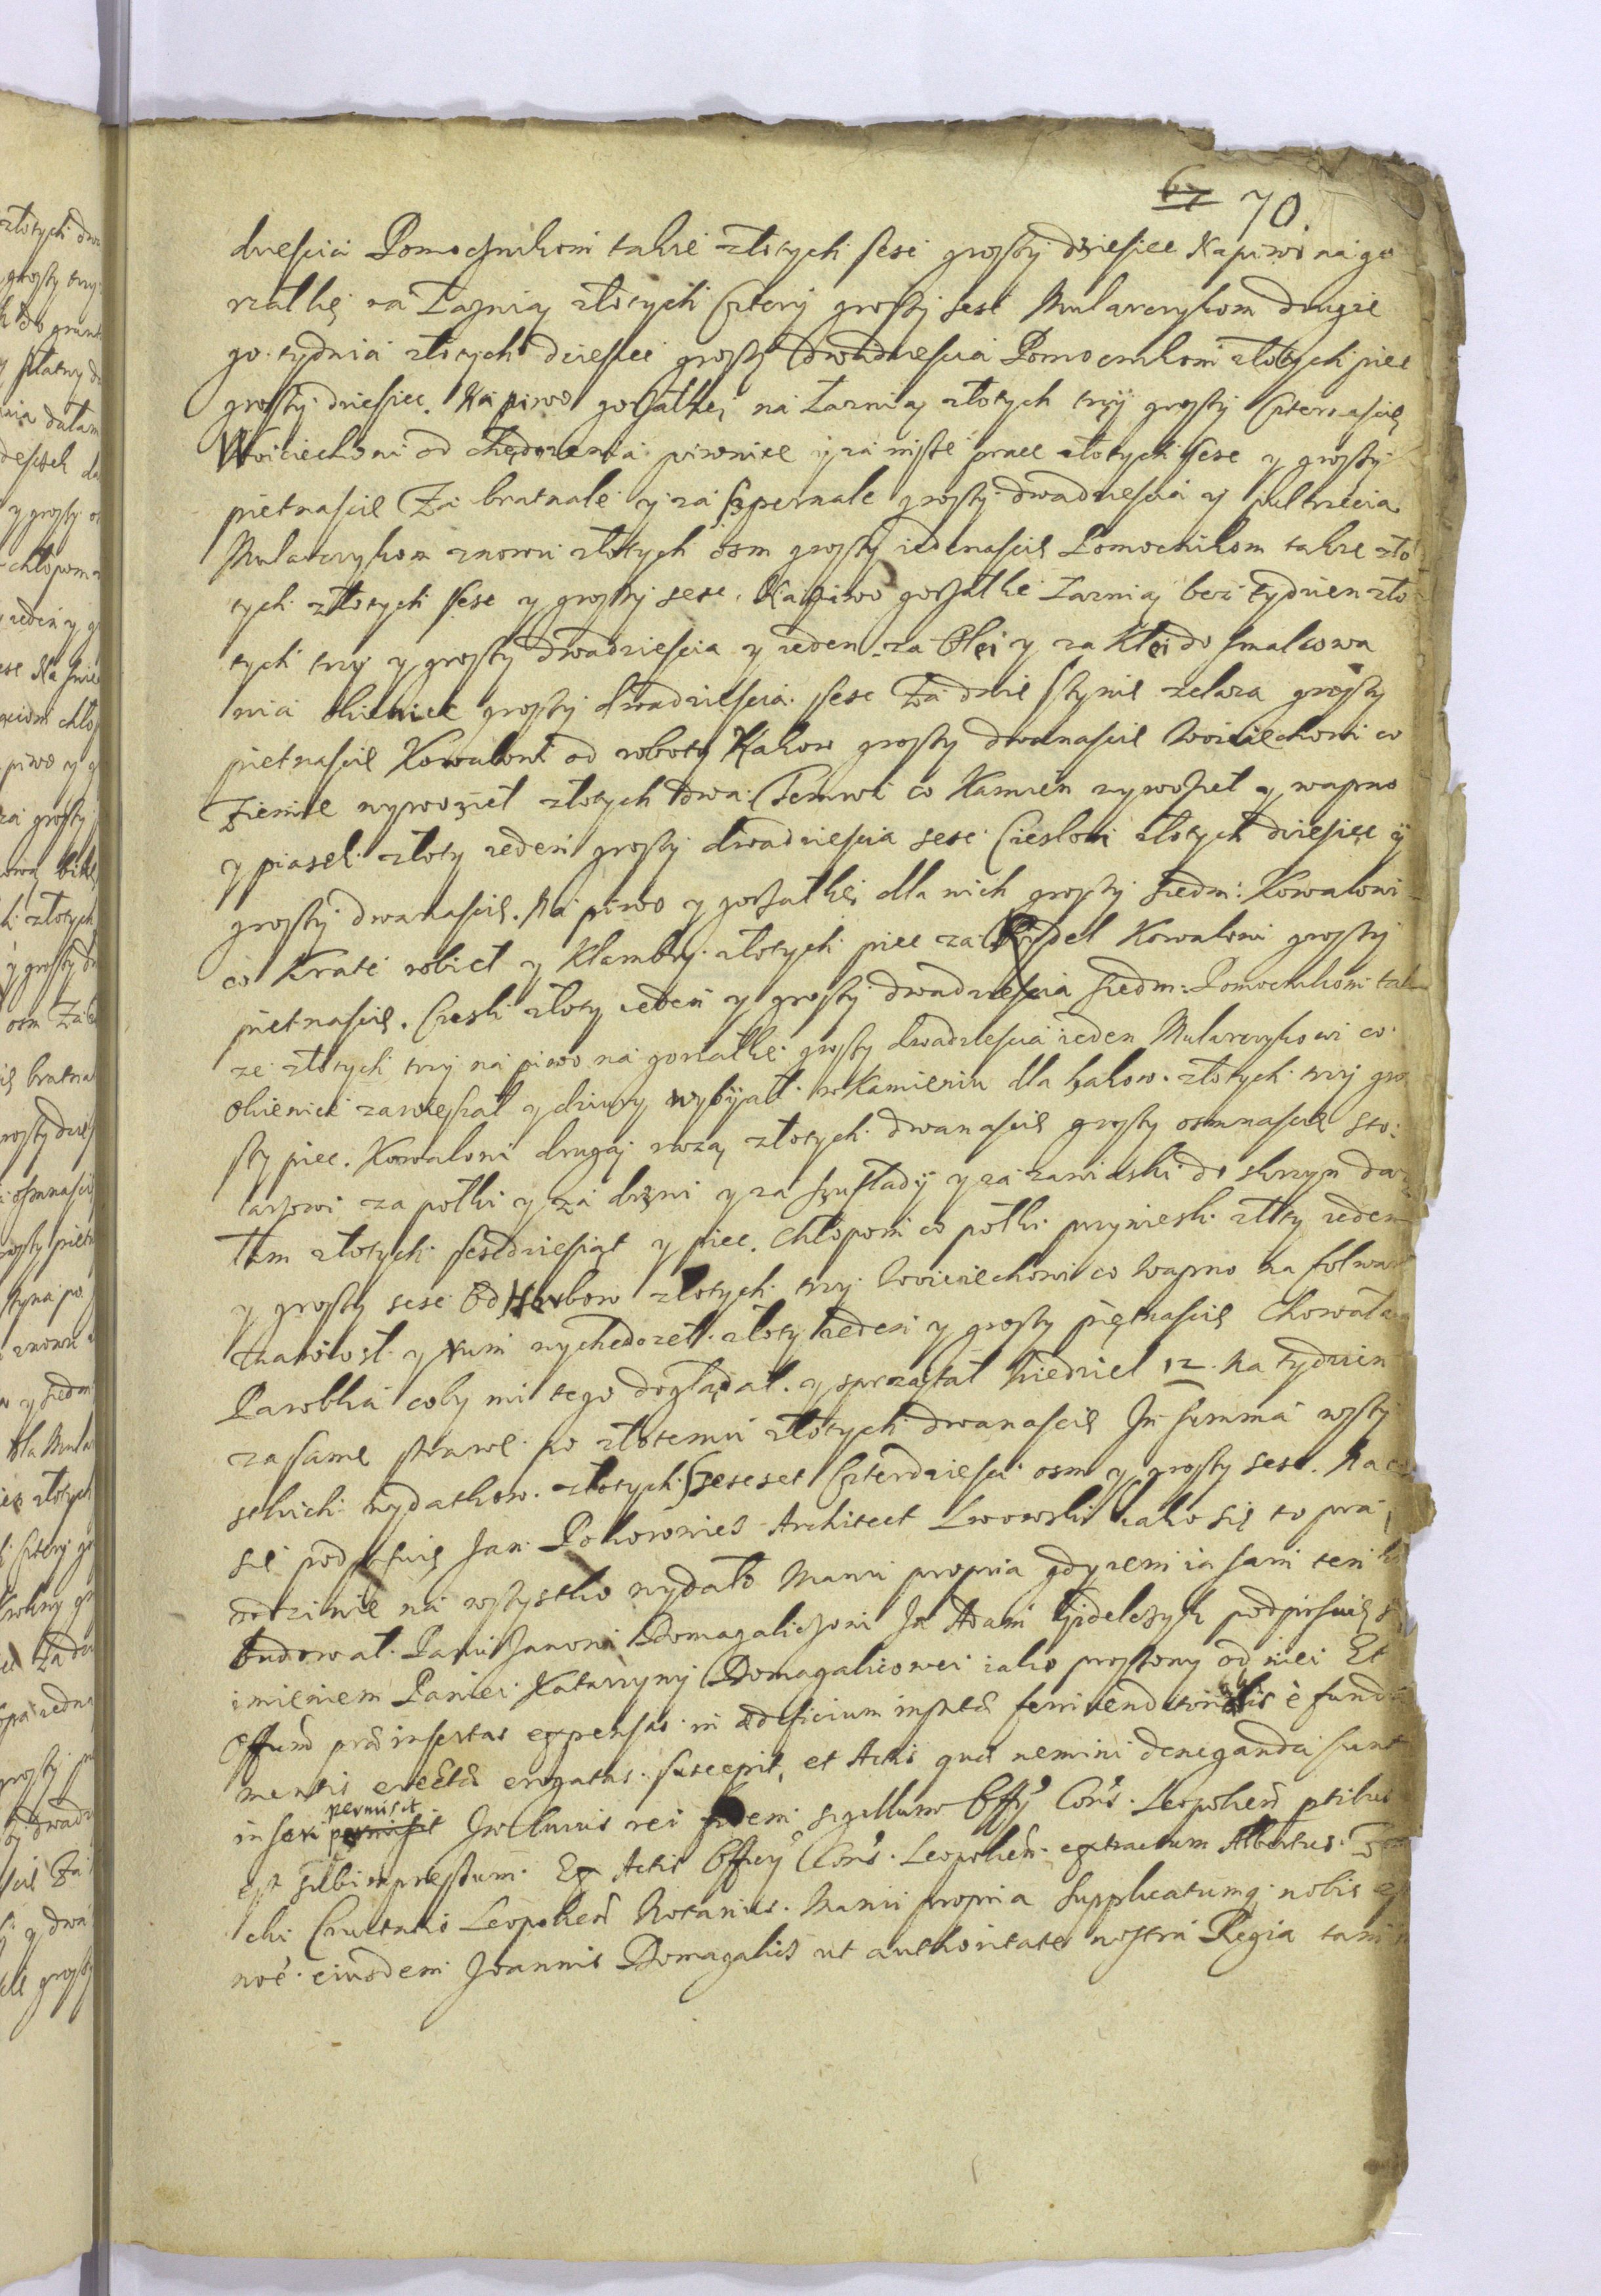 67 70.
dziescia Pomocznikom takze złotych sesc groszy dziesiec Na piwo na go
rzałkę na Łaznią złotych cztery groszy sesc Mularczykom drugie
go tydnia złotych dziesiec groszy dwadziescia Pomocnikom złotych piec
groszy dziesiec. Na piwo gorzałkę na Łaznią złotych trzy groszy czternascie
Woiciechowi od chędozenia piwnice y za insze prace złotych sesc y groszy
pietnascie Za bratnale y za szpernale groszy dwadziescia y pultrzecia
Mularczykom znowu złotych osm groszy iedenascie Pomocnikom takze zło
tych złotych sesc y groszy sesc. Na piwo gorzałke Łaznią bez tydzien zło
tych trzy y groszy dwadziescia y ieden za Olei y za Klei do smalcowa
nia okienice groszy dwadziescia sesc Za dwie sztynie zelaza groszy
pietnascie Kowalowi od roboty Hakow groszy dwanascie Woiciechowi co
Ziemie wywoził złotych dwa. Temuz co Kamien wywoził y wapno
y piasek złoty ieden groszy dwadziescia sesc Cieslom złotych dziesięc y
groszy dwanascie. Na piwo y gorzałkę dla nich groszy siedm: Kowalowi
co Krate robieł y Klambry złotych piec za Kowalowi groszy
pietnascie. Ciesli złoty ieden y groszy dwadziescia siedm: Pomocnikom tak
ze złotych trzy na piwo na gorzałkę groszy dwadziescia ieden Mularczykowi co
Okienice zawieszał y dziury wybijał w Kamieniu dla hakow złotych trzy gro
szy piec. Kowalowi drugi raz złotych dwanascie groszy osmnascie Sto:
larzowi za połki y za drzwi y za szuflady y za zawiaski do skrzyn da
łam złotych sesdziesiąt y piec. Chłopom co połki przyniesli złoty ieden
y groszy sesc Od złotych trzy Woiciechowi co Wapno na folwar
zanosił y wychedozeł złoty ieden y groszy piętnascie Chowała
Parobka coby mi tego doglądał y sprzątał Niedziel 12 Na tydzien
za same strawe po złotemu złotych dwanascie In summa wszy
stkich wydatkow złotych Szescset czterdziesci osm y groszy sesc. Na co
sie podpisuię Jan Pokorowicz Architect Lwowski iako się to pra
wdziwie na wszystko wydało Manu propria gdyzem ia sam ten
budował. Panu Janowi Domagaliczowi Ja Adam Gidelczyk podpisuię
imieniem Paniei Katarzyny Domagaliczowei iako proszony od niei Et
Offum præinsertas expensas in ædeficium erogatas suscepit, et Actis quæ nemini denegandæ sunt
inseri permisit In cuius rei fidem sigillum Officy Cons. Leopolien. ptibus
est subimpressum. Ex Actis Officy Cons. Leopolien. extractum Albertus
chi Civitatis Leopolien Notarius. Manu propria Supplicatumq nobis
noe. eiusdem Joannis Domagalicz ut authoritate nostra Regia tam